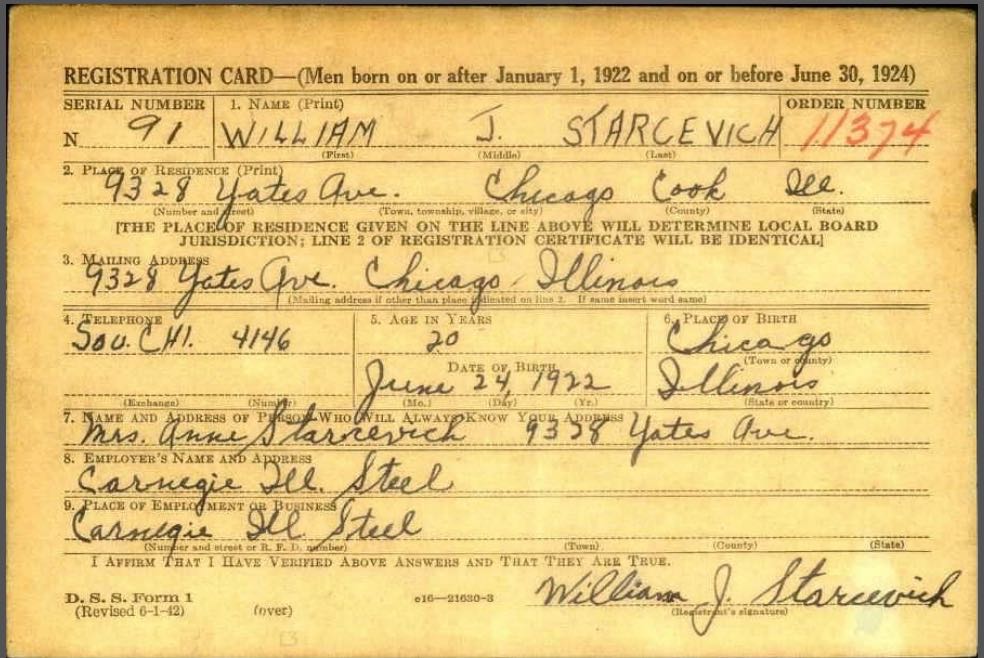 REGISTRATION CARD—(Men born on or after January 1, 1922 and on or before June 30, 1924)
SERIAL NUMBER 1. NAME (Print) ORDER NUMBER
N 91 WILLIAM J. STARCEVICH 11374
(First) (Middle) (Last)
2. PLACE OF RESIDENCE (Print)
9328 Yates Ave. Chicago Cook Ill.
(Number and street) (Town, township, village, or city) (County) (State)
[THE PLACE OF RESIDENCE GIVEN ON THE LINE ABOVE WILL DETERMINE LOCAL BOARD
JURISDICTION; LINE 2 OF REGISTRATION CERTIFICATE WILL BE IDENTICAL]
3. MAILING ADDRESS
9328 Yates Ave. Chicago Illinois
(Mailing address if other than place indicated on line 2. If same insert word same)
4. TELEPHONE 5. AGE IN YEARS 6. PLACE OF BIRTH
Sou. CHI. 4146 20 Chicago
(Town or county)
DATE OF BIRTH
June 24, 1922 Illinois
(Exchange) (Number) (Mo.) (Day) (Yr.) (State or country)
7. NAME AND ADDRESS OF PERSON WHO WILL ALWAYS KNOW YOUR ADDRESS
Mrs. Anne Starcevich 9328 Yates Ave.
8. EMPLOYER'S NAME AND ADDRESS
Carnegie Ill. Steel
9. PLACE OF EMPLOYMENT OR BUSINESS
Carnegie Ill Steel
(Number and street or R. F. D. number) (Town) (County) (State)
I AFFIRM THAT I HAVE VERIFIED ABOVE ANSWERS AND THAT THEY ARE TRUE.
D. S. S. Form 1
(Revised 6-1-42) (over) c16—21630-3 William J. Starcevich
(Registrant's signature)